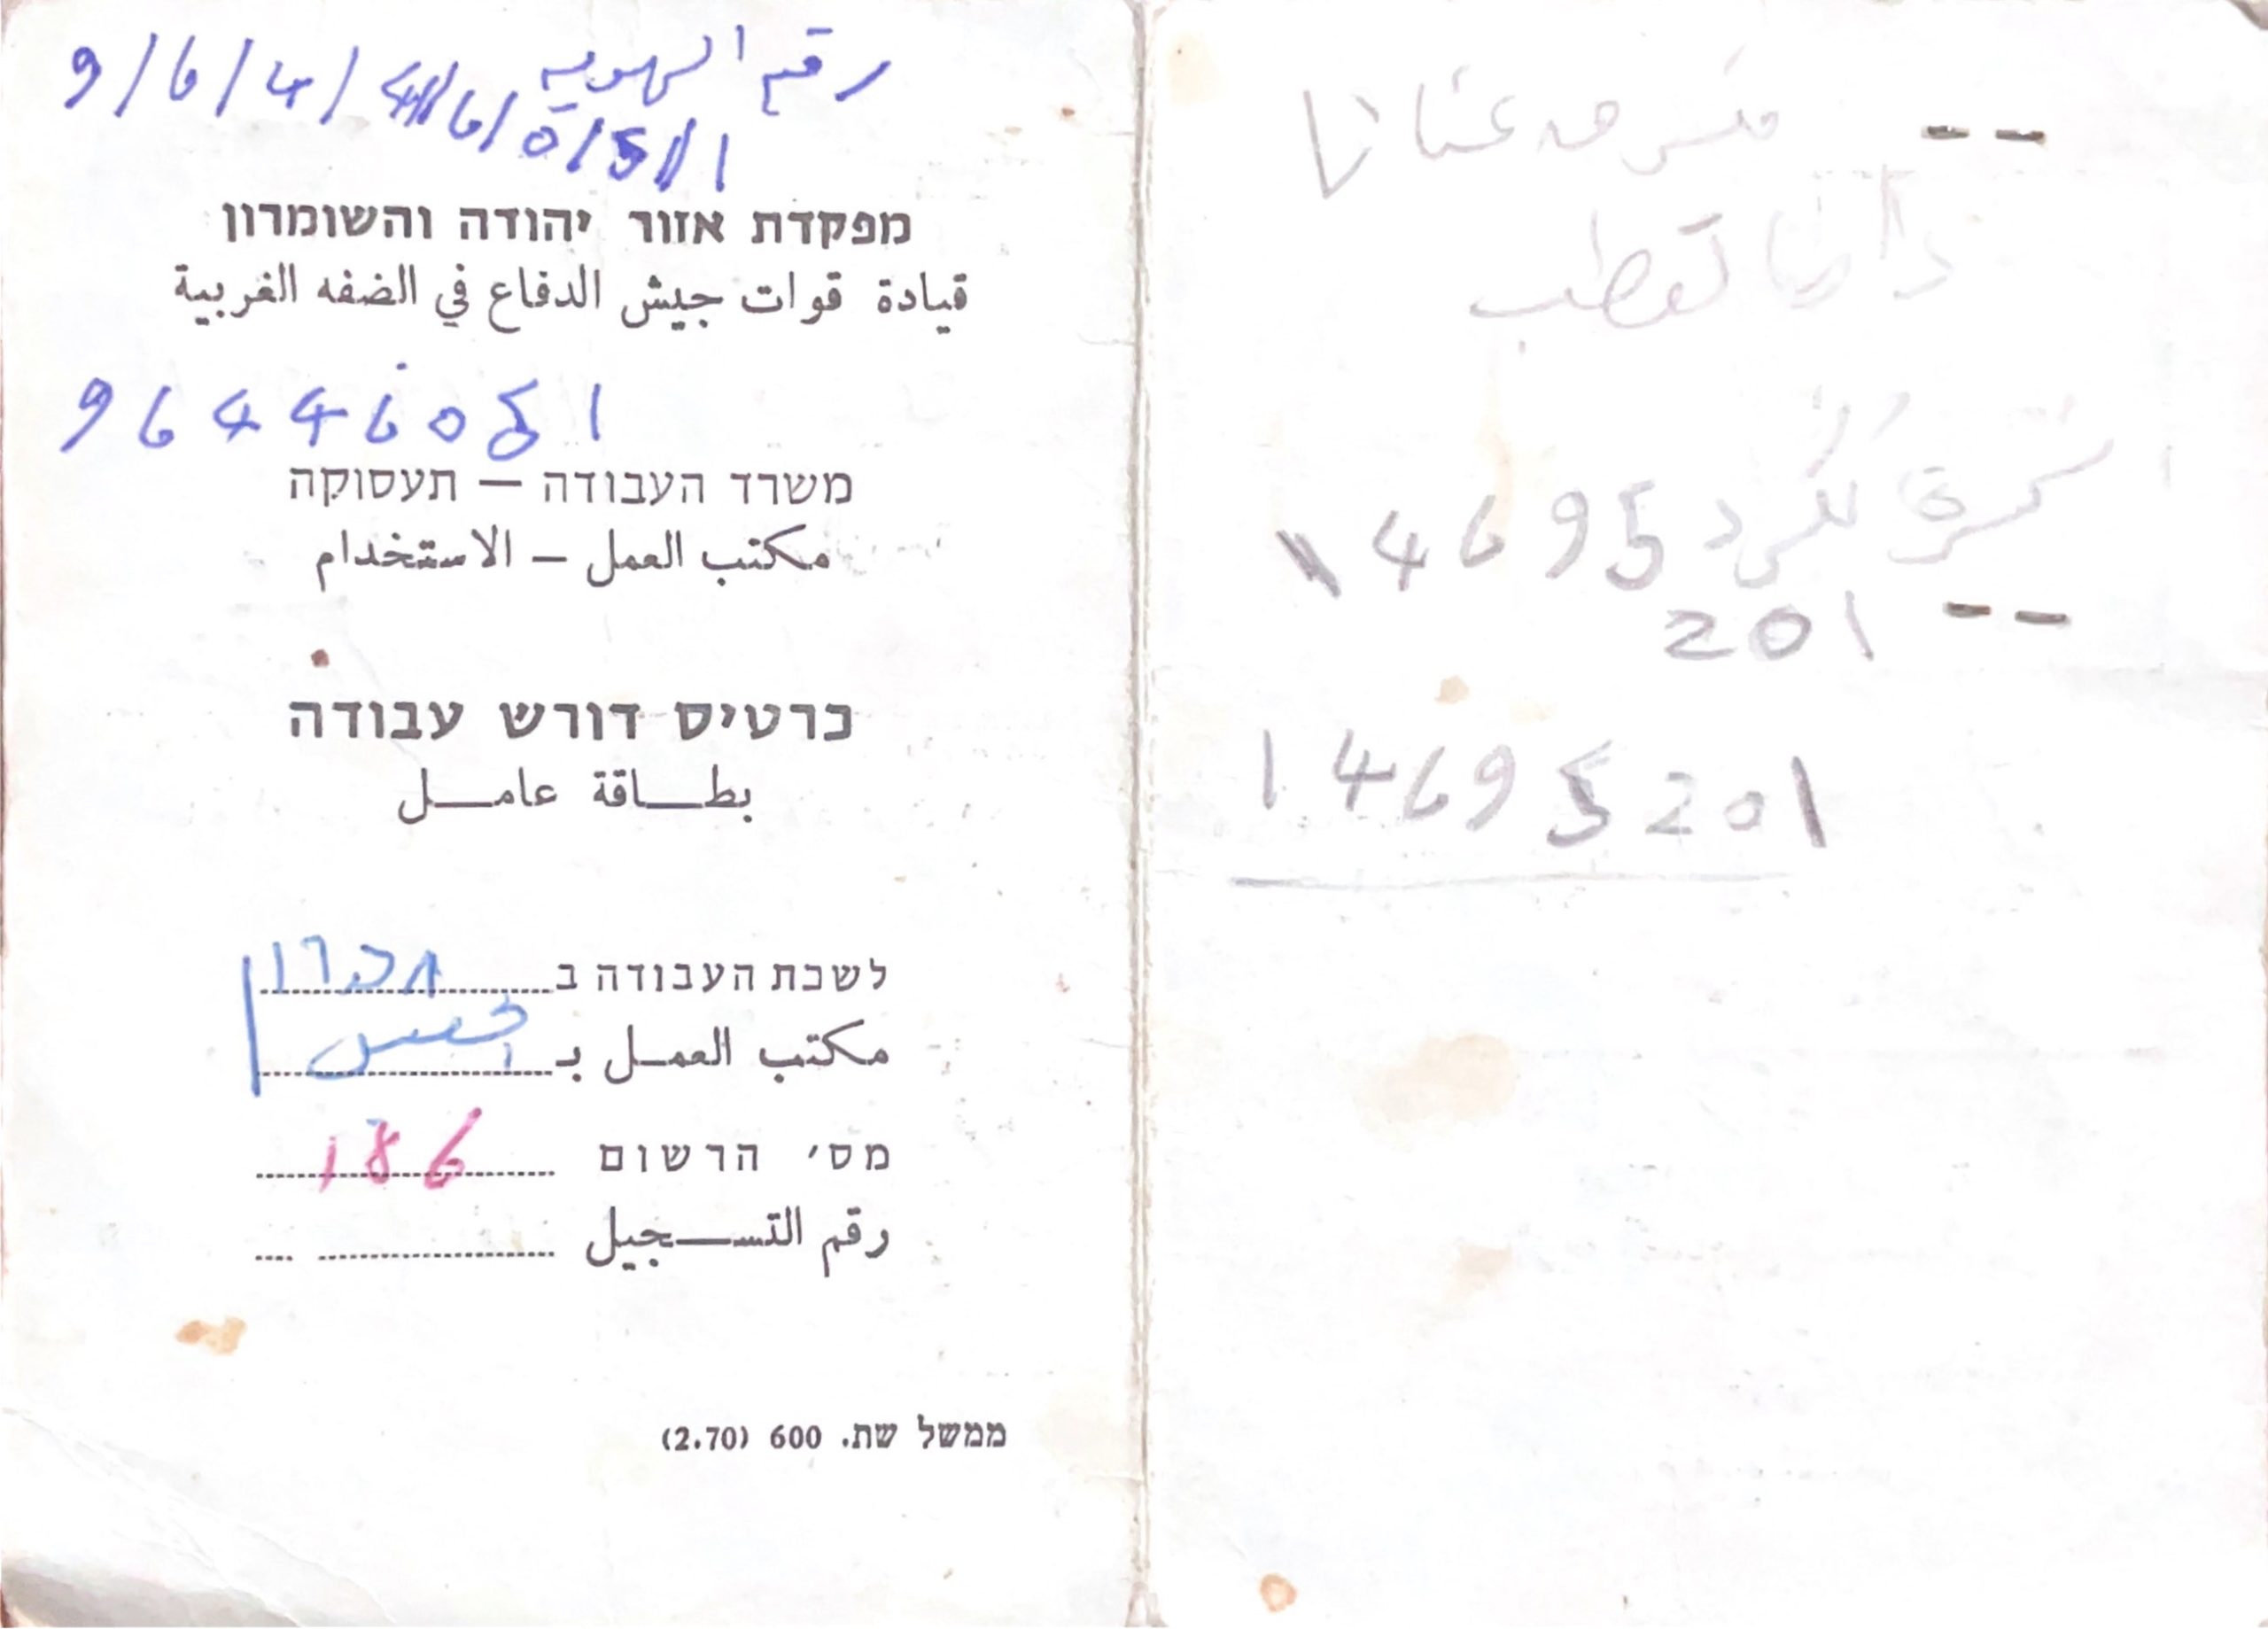 رقم الهوية
9/6/4/4/6/0/5/1
מפקדת אזור יהודה והשומרון
قيادة قوات جيش الدفاع في الضفه الغربية
96446051
משרד העבודה – תעסוקה
مكتب العمل – الاستخدام
כרטיס דורש עבודה
بطاقة عامل
לשכת העבודה ב
مكتب العمل بـ
מס׳ הרשום 186
رقم التسجيل
ממשל שת. 600 (2.70)
--
14695
201 --
14695201